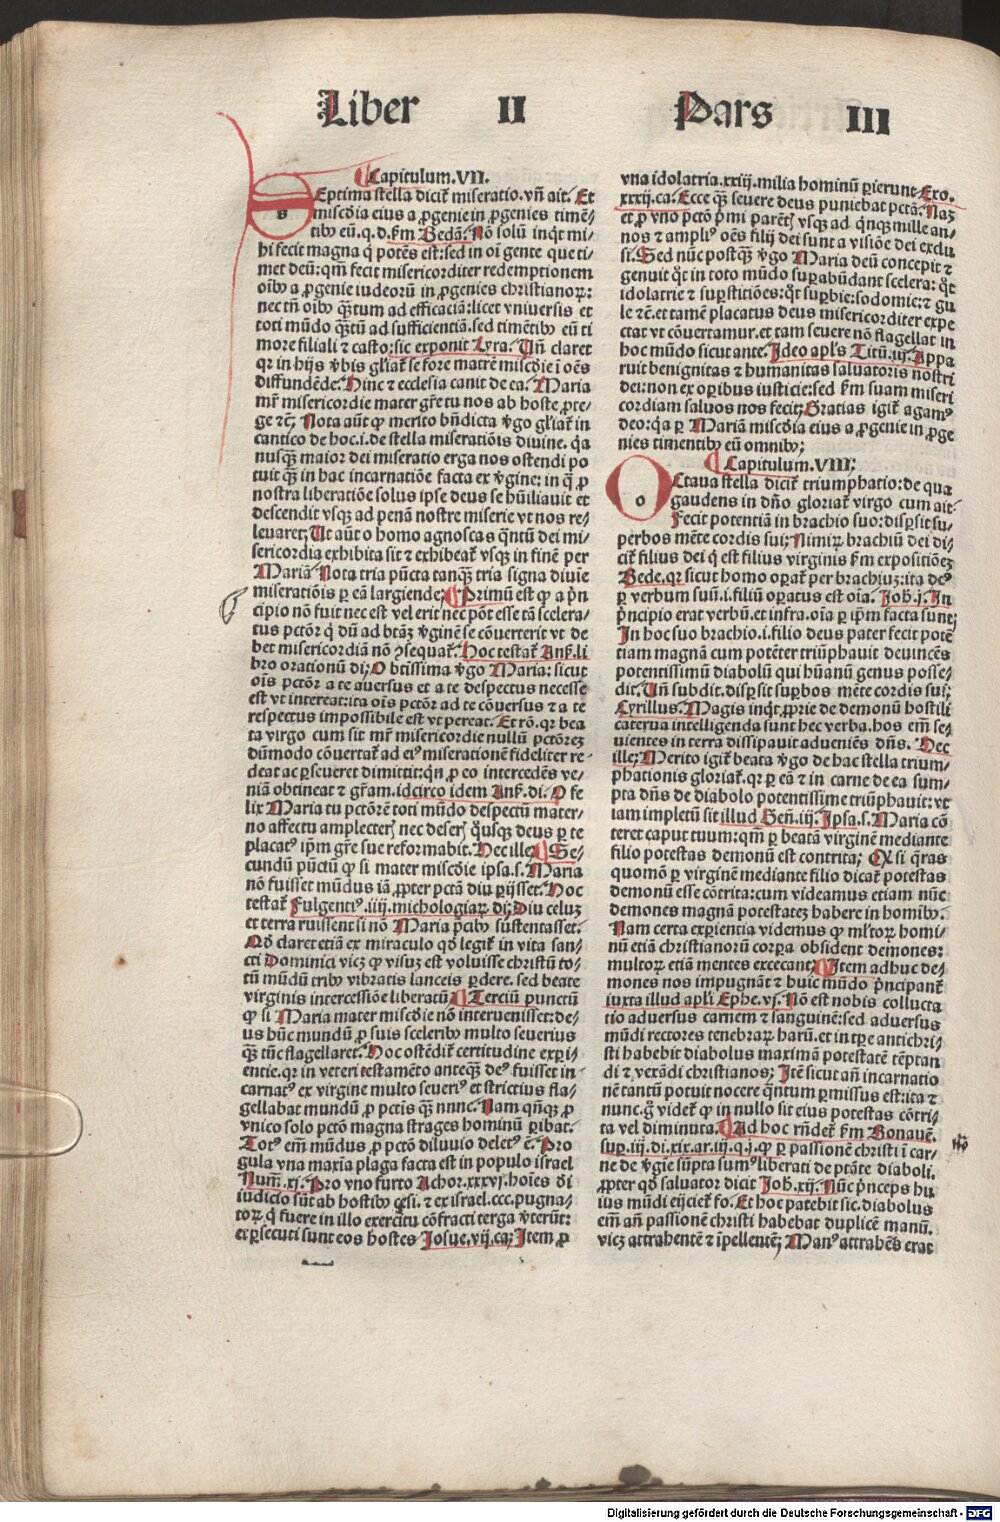 Liber II Pars III
Capitulum.VII.
SEptima stella dicit᷑ miseratio.vñ ait. Et
mis̃cdia eius a ꝓgenie in ꝓgenies timẽ/
tibꝰ eũ.q.d.ẜm Bedã. Nõ solũ inq̃t mi/
hi fecit magna q̇ potẽs est:sed in oĩ gente que ti/
met deũ:qm̃ fecit misericorditer redemptionem
oĩbꝰ a ꝓgenie iudeorũ in ꝓgenies christianoꝝ:
nec tñ oĩbꝰ q̃ꝫtum ad efficaciã:licet vniversis et
toti mũdo q̃ꝫtũ ad sufficientiã.sed timẽtibꝰ eũ ti
more filiali ⁊ casto:sic exponit Lyra. Un̄ claret
qꝛ in hijs v̓bis gl̓iat᷑ se fore matrẽ mis̃cdie ĩ oẽs
diffundẽde. Hinc ⁊ ecclesia canit de ea. Maria
mr̃ misericordie mater gr̃e tu nos ab hoste ꝓte/
ge ⁊c̃. Nota aũt ꝙ merito bñdicta v̓go gl̓iat᷑ in
cantico de hoc.i.de stella miseratiõis divine. q̇a
nusq̃ꝫ maior dei miseratio erga nos ostendi po
tuit q̃ꝫ in hac incarnatiõe facta ex v̓gine: in q̃ ꝓ
nostra liberatiõe solus ipse deus se hũiliauit et
descendit vsqꝫ ad penã nostre miserie vt nos re/
leuaret; Ut aũt o homo agnoscas q̃ntũ dei mi/
sericordia exhibita sit ⁊ exhibeat᷑ vsqꝫ in finẽ per
Mariã. Nota tria pũcta tanq̃ꝫ tria signa diuie
miseratiõis ꝑ eã largiende; Primũ est ꝙ a pͥn
cipio nõ fuit nec est vel erit nec põt esse tã scelera/
tus pctõr q̇ dũ ad btãꝫ v̓ginẽ se cõuerterit vt de
bet misericordiã nõ ↄsequat᷑. Hoc testat᷑ Ans̃.li
bro orationũ di; O btissima v̓go Maria: sicut
oĩs pctõr a te auersus et a te despectus necesse
est vt intereat:ita oĩs pctõr ad te cõuersus ⁊ a te
respectus impossibile est vt pereat. Et rõ.qꝛ bea
ta virgo cum sit mr̃ misericordie nullũ pctõreꝫ
dũmodo cõuertat᷑ ad eiꝰ miserationẽ fideliter re-
deat ac ꝑseueret dimittit:qn̄ ꝓ eo intercedẽs ve/
niã obtineat ⁊ gr̃am.idcirco idem Ans̃.di. O fe
lix Maria tu pctõrẽ toti mũdo despectũ mater/
no affectu amplecter᷑ nec deser᷑ q̃usqꝫ deus ꝑ te
placatꝰ ip̃m gr̃e sue reformabit. Hec ille; Se/
cundũ pũctũ ꝙ si mater mis̃cdie ipsa.s.Maria
nõ fuisset mũdus iã ꝓpter pctã diu ꝑijsset. Hoc
testat᷑ Fulgentiꝰ.iiij.michologiaꝝ di; Diu celuꝫ
et terra ruissent si nõ Maria p̃cibꝰ sustentasset.
Qd̃ claret etiã ex miraculo qd̃ legit᷑ in vita san/
cti Dominici vicꝫ ꝙ visuꝫ est voluisse christũ to/
tũ mũdũ tribꝰ vibratis lanceis ꝑdere. sed beate
virginis intercessiõe liberatũ; Terciũ punctũ
ꝙ si Maria mater mis̃cdie nõ interuenisset:de/
us hũc mundũ ꝓ suis sceleribꝰ multo seuerius
q̃ꝫ tũc flagellaret. Hoc ostẽdit᷑ certitudine exꝑi/
entie.qꝛ in veteri testamẽto anteq̃ꝫ deꝰ fuisset in-
carnatꝰ ex virgine multo seueriꝰ et strictius fla/
gellabat mundũ ꝓ pctis q̃ꝫ nnnc. Nam qñqꝫ ꝓ
vnico solo pctõ magna strages hominũ ꝑibat.
Totꝰ em̃ mũdus ꝓ pctõ diluvio deletꝰ ẽ. Pro
gula vna maxia plaga facta est in populo israel
Num̃.xj. Pro vno furto Achor.xxxvj.hoĩes di
iudicio sũt ab hostibꝰ cesi. ⁊ ex israel.ccc.pugna/
toꝝ q̇ fuere in illo exercitu cõfracti terga v̓terũt:
et ꝑsecuti sunt eos hostes Josue.vij.ca; Item ꝓ
vna idolatria.xxiij.milia hominũ ꝑierunt Exo.
xxxij.ca. Ecce q̃ꝫ seuere deus puniebat pctã. Naꝫ
et ꝓ vno pctõ pͥmi parẽt᷑ vsqꝫ ad q̇nqꝫ mille an/
nos ⁊ ampliꝰ oẽs filij dei sunt a visiõe dei exclu
si. Sed nũc postq̃ꝫ v̓go Maria deũ concepit ⁊
genuit q̃t in toto mũdo suꝑabũdant scelera: q̃t
idolatrie ⁊ suꝑstitiões:q̃t suꝑbie:sodomie:⁊ gu
le ⁊c̃.et tamẽ placatus deus misericorditer expe
ctat vt cõuertamur.et tam seuere nõ flagellat in
hoc mũdo sicut ante. Ideo apl̓s Titũ.iij. Appa
ruit benignitas ⁊ humanitas saluatoris nostri
dei:non ex oꝑibus iusticie:sed ẜm suam miseri
cordiam saluos nos fecit; Gratias igit᷑ agamꝰ
deo:q̇a ꝑ Mariã mis̃cdia eius a ꝓgenie in ꝓge
nies timentibꝰ eũ omnibꝰ;
Capitulum.VIII;
OCtaua stella dicit᷑ triumphatio:de qua
gaudens in dño gloriat᷑ virgo cum ait
Fecit potentiã in brachio suo:disꝑsit su/
perbos mẽte cordis sui; Nimiꝝ brachiũ dei di/
cit᷑ filius dei q̇ est filius virginis ẜm expositiõeꝫ
Bede.qꝛ sicut homo oꝑat᷑ per brachiuꝫ:ita deꝰ
ꝑ verbum suũ.i.filiũ oꝑatus est oĩa. Joh̃.j. In
pͥncipio erat verbũ.et infra.oĩa ꝑ ip̃m facta sunt;
In hoc suo brachio.i.filio deus pater fecit potẽ
tiam magnã cum potẽter triũphauit deuincẽs
potentissimũ diabolũ qui hũanũ genus posse/
dit. Un̄ subdit.disꝑsit suꝑbos mẽte cordis sui;
Cyrillus. Magis inq̃t ꝓprie de demonũ hostili
caterua intelligenda sunt hec verba.hos em̃ se/
uientes in terra dissipauit adueniẽs dñs. Hec
ille; Merito igit᷑ beata v̓go de hac stella trium/
phationis gloriat᷑.qꝛ ꝑ eã ⁊ in carne de ea sum/
pta dñs de diabolo potentissime triũphauit:vt
iam impletũ sit illud Gen̄.iij. Ipsa.s.Maria cõ
teret caput tuum:qm̃ ꝑ beatã virginẽ mediante
filio potestas demonũ est contrita; Qꝫ si q̃ras
quomõ ꝑ virginẽ mediante filio dicat᷑ potestas
demonũ esse cõtrita:cum videamus etiam nũc
demones magnã potestateꝫ habere in homibꝰ.
Nam certa exꝑientia videmus ꝙ ml̓toꝝ homi/
nũ etiã christianorũ corꝑa obsident demones:
multoꝝ etiã mentes excecant; Item adhuc de/
mones nos impugnãt ⁊ huic mũdo pͥncipant᷑
iuxta illud apl̓i Ephe.vj. Nõ est nobis collucta
tio aduersus carnem ⁊ sanguinẽ:sed aduersus
mũdi rectores tenebraꝝ harũ.et in tꝑe antichri/
sti habebit diabolus maximã potestatẽ tẽptan
di ⁊ vexãdi christianos; Itẽ sicut añ incarnatio
nẽ tantũ potuit nocere q̃ntum ꝑmissus est:ita ⁊
nunc.g̃ videt᷑ ꝙ in nullo sit eius potestas cõtri/
ta vel diminuta. Ad hoc rñdet᷑ ẜm Bonauẽ.
suꝑ.iij.di.xix.ar.iij.q.j.ꝙ ꝑ passionẽ christi ĩ car/
ne de v̓gie sũpta sumꝰ liberati de ptãte diaboli.
ꝓpter qd̃ saluator dicit Joh̃.xij. Nũc pͥnceps hu
ius mũdi eijciet᷑ fo. Et hoc patebit sic.diabolus
em̃ añ passionẽ christi habebat duplicẽ manũ.
vicꝫ attrahentẽ ⁊ ĩpellentẽ; Manꝰ attrahẽs erat
Digitalisierung gefördert durch die Deutsche Forschungsgemeinschaft - DFG